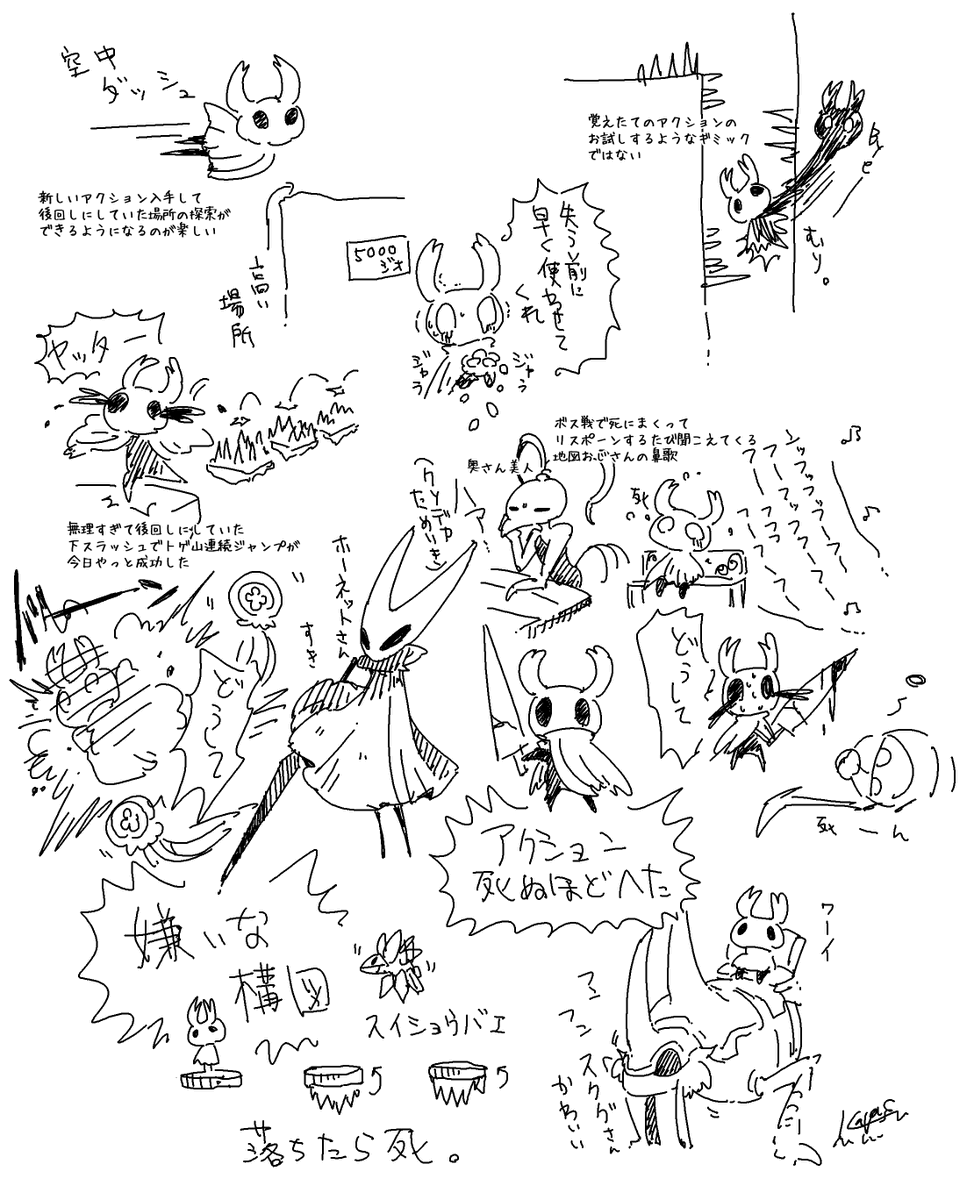 空中
ダッシュ
新しいアクション入手して
後回しにしていた場所の探索が
できるようになるのが楽しい
覚えたてのアクションの
お試しするようなギミック
ではない
むり。
高い
場所
5000
ジオ
失う前に
早く使わせて
くれ
ジャラ
ジャラ
ヤッター!
無理すぎて後回しにしていた
下スラッシュでトゲ山連続ジャンプが
今日やっと成功した
ボス戦で死にまくって
リスポーンするたび聞こえてくる
地図おじさんの鼻歌
奥さん美人
クソデカ
ためいき
ハァ…
死
ンッフッフー
フーフッフー
フーフフーフ
ホーネットさん
すき
どうして
どうして
死ーん
アクション
死ぬほどへた
嫌いな
構図
スイショウバエ
落ちたら死。
ワーイ
フンフン
スタグさん
かわいい